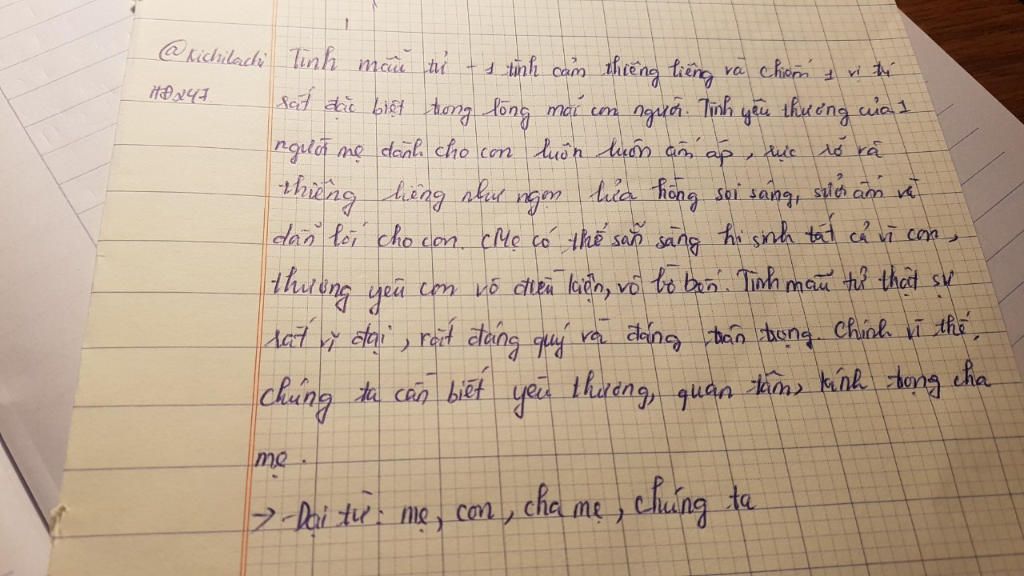 @kichilachi Tình mẫu tử - 1 tình cảm thiêng liêng và chiếm 1 vị trí
HĐ247. rất đặc biệt trong lòng mỗi con người. Tình yêu thương của 1
người mẹ dành cho con luôn luôn ấm áp, rực rỡ và
thiêng liêng như ngọn lửa hồng soi sáng, sưởi ấm và
dẫn lối cho con. Mẹ có thể sẵn sàng hi sinh tất cả vì con,
thương yêu con vô điều kiện, vô bờ bến. Tình mẫu tử thật sự
rất vĩ đại, rất đáng quý và đáng trân trọng. Chính vì thế,
chúng ta cần biết yêu thương, quan tâm, kính trọng cha
mẹ.
→ - Đại từ: mẹ, con, cha mẹ, chúng ta